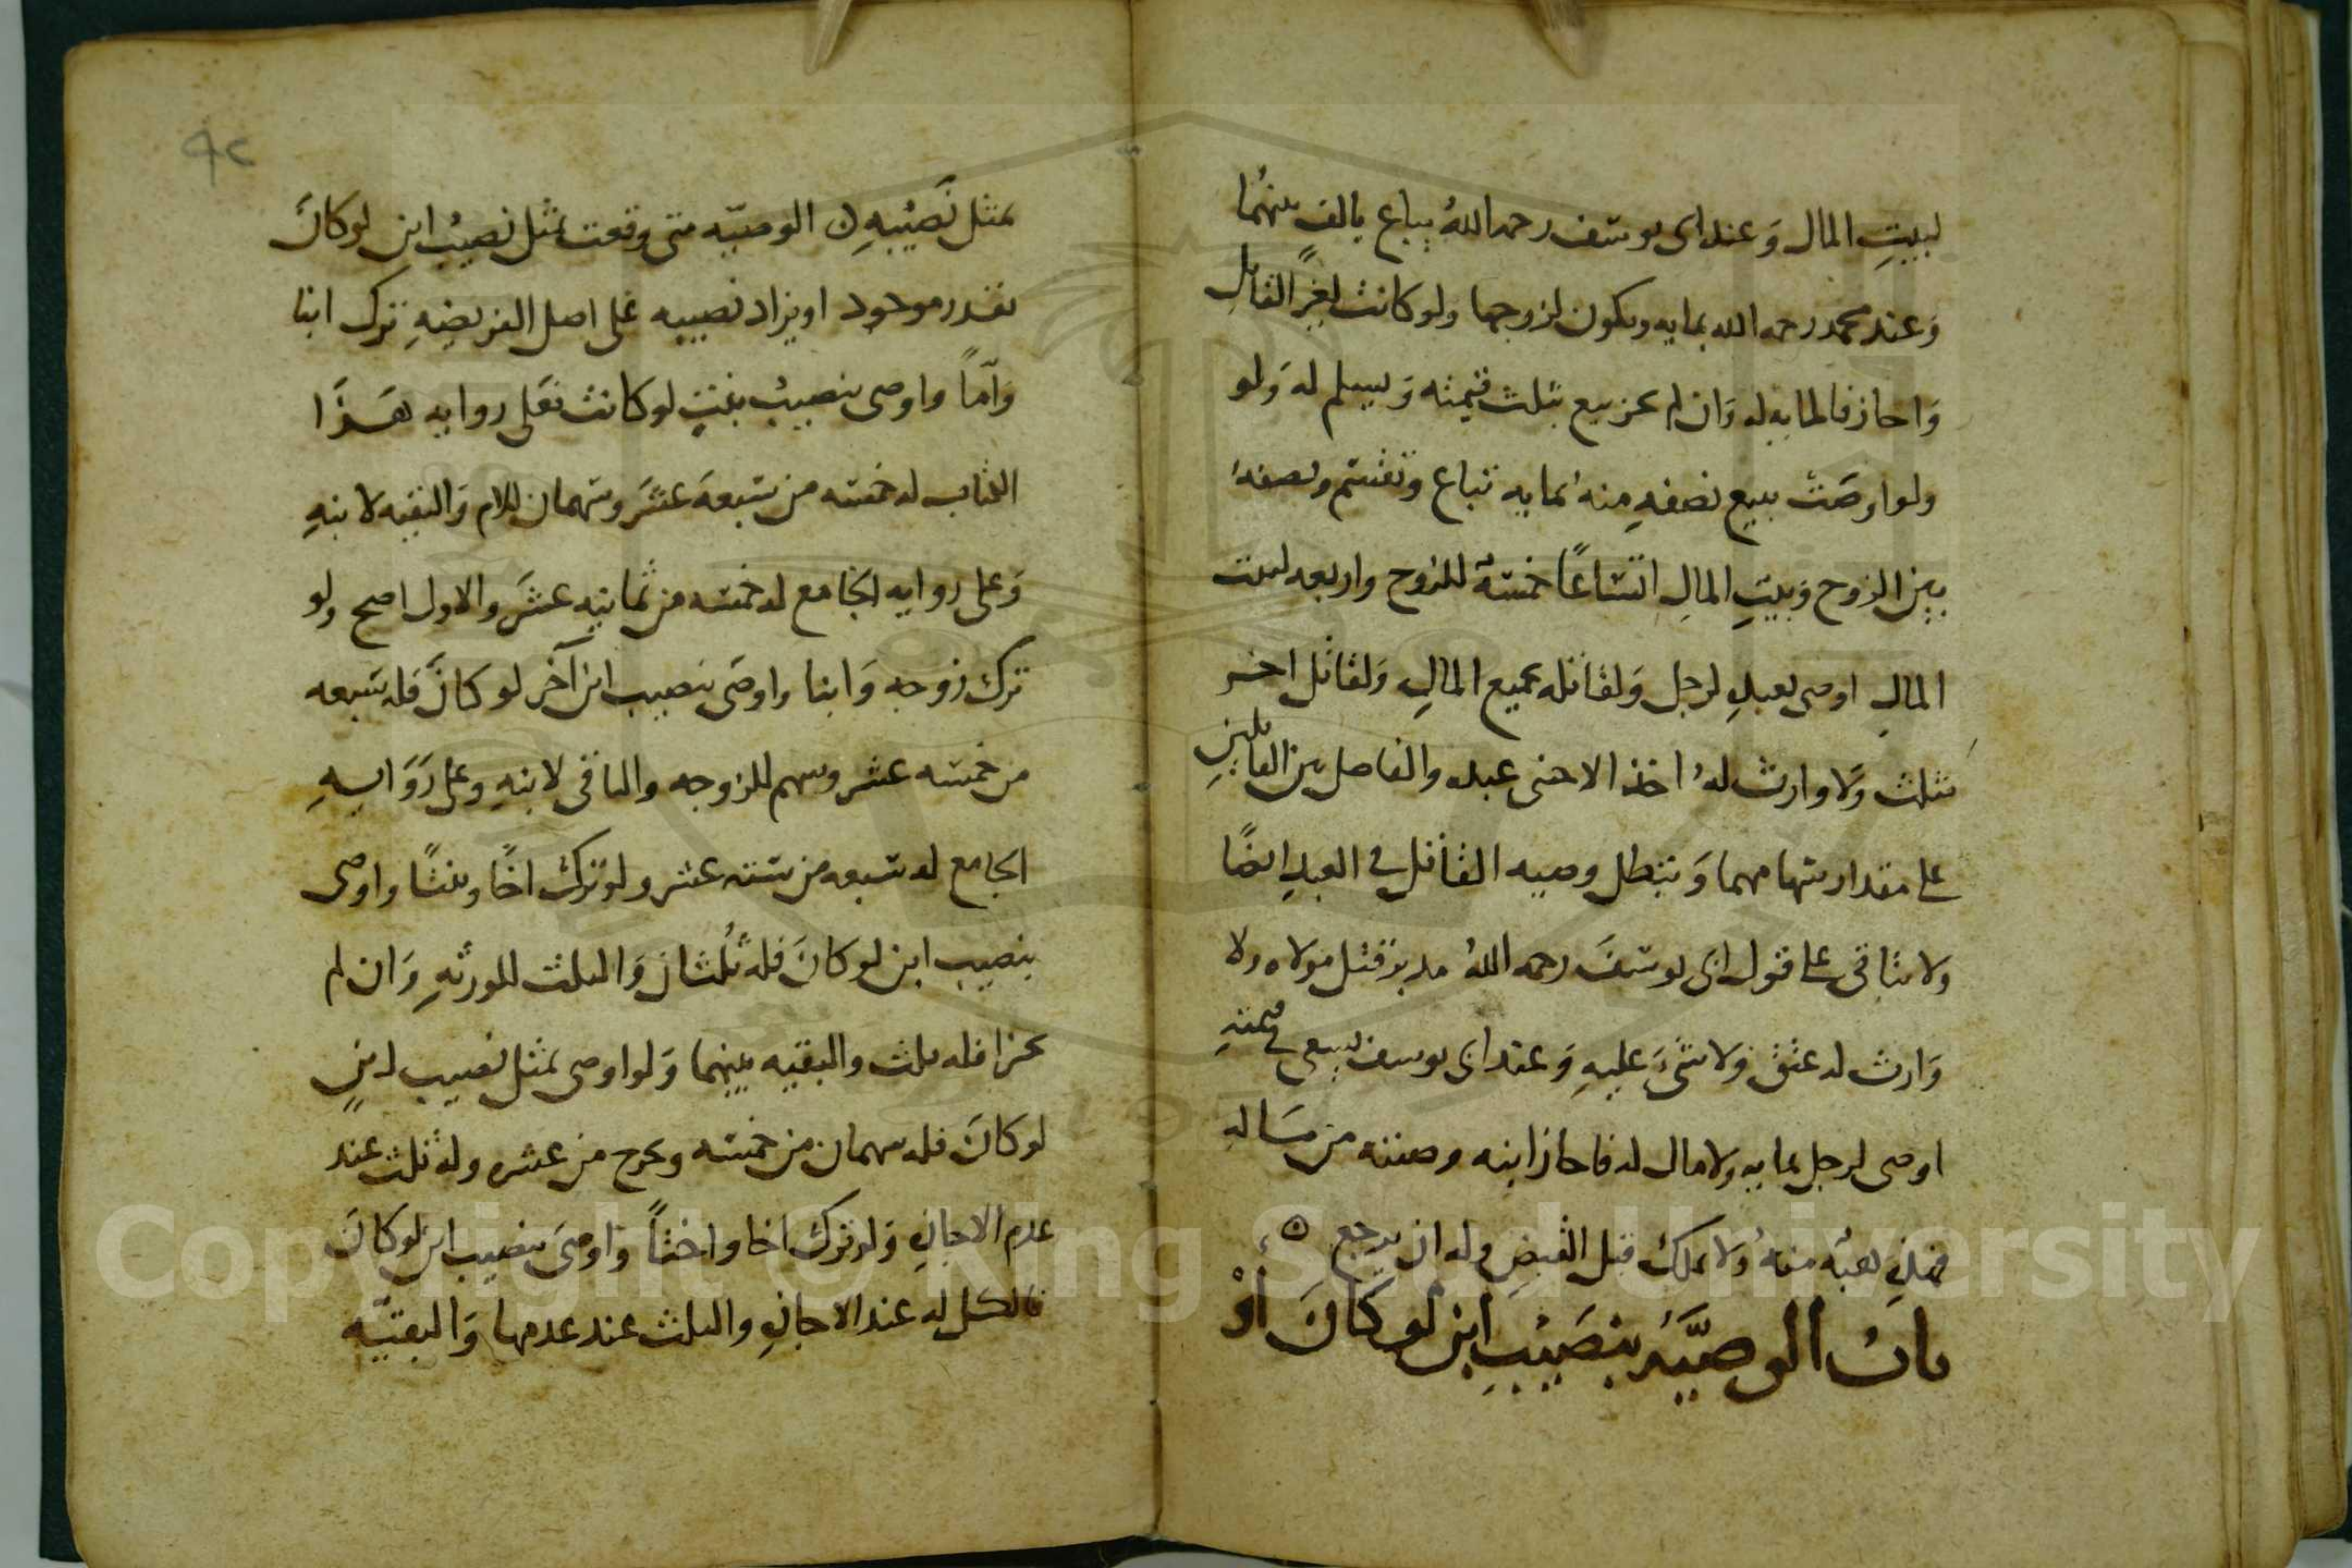 لبيتِ المال وَعند ابى يوسف رحمه اللهُ يباع بالف منهُما
وَعند محمد رحمه الله بمايه ويكون لزوجها ولو كانت لغيرِ القاتلِ
وَاجاز فالمايه له وَان لم يجز بيع بثلث قيمته وَيسلم له وَلو
ولو اوصَت ببيع نصفهِ منهُ بمايه تباع وتقسم ونصفهُ
بين الزوج وَبيتِ المالِ اتساعًا خمسةٌ للزوج واربعه لبيت
المالِ اوصى بعبدٍ لرجل وَلقاتله بجميع المالِ وَلقاتل اخر
بثلث وَلا وارث لهُ اخذ الاجنبى عبده والفاضل بين القاتلينِ
على مقدار سهامهما وَتبطل وصيه القاتل فى العبدِ ايضًا
ولا يتاتى على قول ابى يوسفَ رحمه اللهُ مدبر قتل مولاه ولا
وَارث له عتق وَلا شىَ عليهِ وَعند ابى يوسف يسعى فى قيمتهِ
اوصى لرجل بمايه ولا مال له فاجاز ابنه وصيته من مَاله
فهذهِ هبَه منهُ وَلا يملك قبل القبضِ وله ان يرجع ه
بابُ الوصيَّة بنصَيْبِ ابنٍ لو كانَ أوْ
بمثل نَصيْبهِ ن الوصيّه متى وقعت بمثل نصيبْ ابن لو كانَ
يقدر موجود او يزاد نصيبه على اصل الفريضهِ ترك ابنا
وَامّاً واوصى بنصيبْ بنتٍ لو كانت فعَلى روايه هَذا
الكتاب له خمسه من سبعهَ عشَر وسهمان للام وَالبقيه لابنهِ
وَعلى روايه الجامع له خمسه من ثمانيه عشَر والاول اصح ولو
ترك زوجه وَابنا واوصَى بنصيب ابن آخر لو كانَ فله سَبعه
من خمسه عشر وسهم للزوجه والباقى لابنهِ وعلى رَوَايهِ
الجامع له سبعه من ستته عشر ولو ترك اخًا وبنتًا واوصى
بنصيب ابن لو كانَ فله ثُلثان وَالثلث للورثهِ وَان لم
يجزا فله ثلث والبقيه بينهما وَلو اوصى بمثل نصيب ابنٍ
لو كانَ فله سهمان من خمسه ويخرج من عشره وله ثلث عند
عدم الاجازهِ وَلو ترك اخا واختاً وَاوصىَ بنصيب ابن لو كانَ
فالكل له عند الاجازهِ والثلث عند عدمها وَالبقيّه